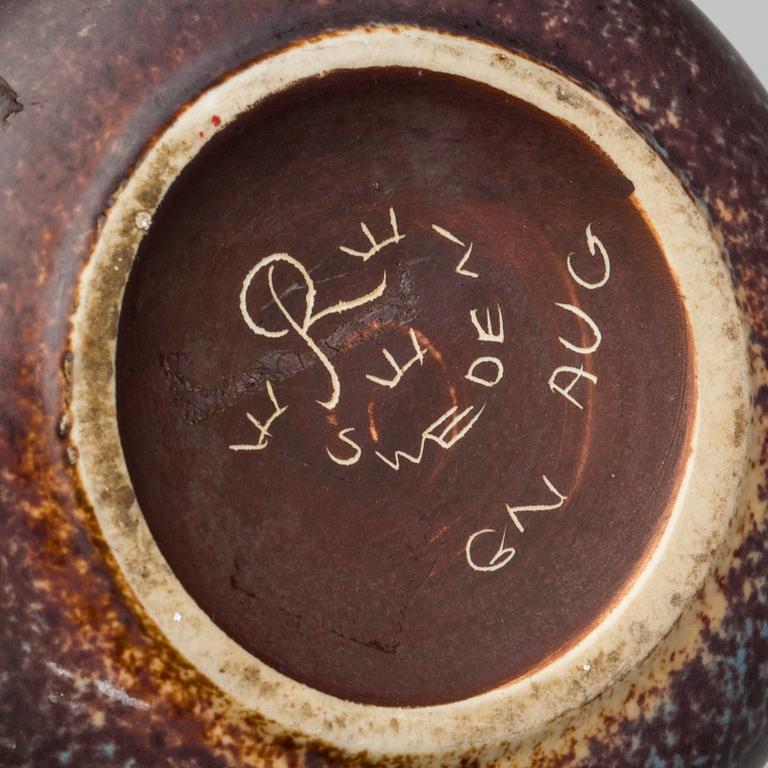 R
SWEDEN
GN AUG